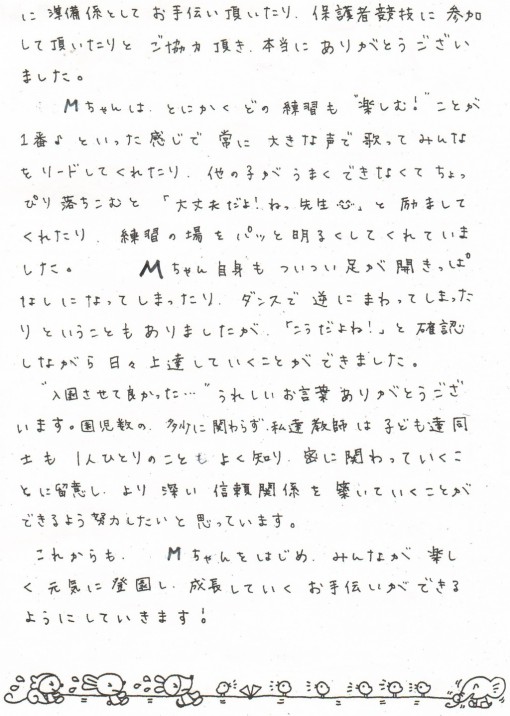 に 準備係として お手伝い頂いたり、保護者競技に 参加
して頂いたりと ご協力 頂き、本当に ありがとうござい
ました。
Mちゃんは、とにかく どの 練習も "楽しむ!" ことが
1番♪ といった 感じで 常に 大きな声で 歌って みんな
を リードしてくれたり、他の子が うまく できなくて ちょっ
ぴり 落ちこむと 「大丈夫だよ!ねっ先生」と 励まして
くれたり、練習の場を パッと 明るくしてくれていま
した。 Mちゃん自身も ついつい 足が 開きっぱ
なしになってしまったり、ダンスで 逆に まわってしまった
りということもありましたが、「こうだよね!」と 確認
しながら 日々 上達していくことができました。
"入園させて良かった…" うれしいお言葉 ありがとうござ
います。園児数の、多少に 関わらず、私達教師は 子ども達同
士も 1人ひとりのことも よく知り、密に 関わっていくこ
とに留意し、より 深い 信頼関係を 築いていくことが
できるよう努力したいと 思っています。
これからも、 Mちゃんをはじめ、みんなが 楽し
く 元気に 登園し、成長していく お手伝いができる
ようにしていきます!